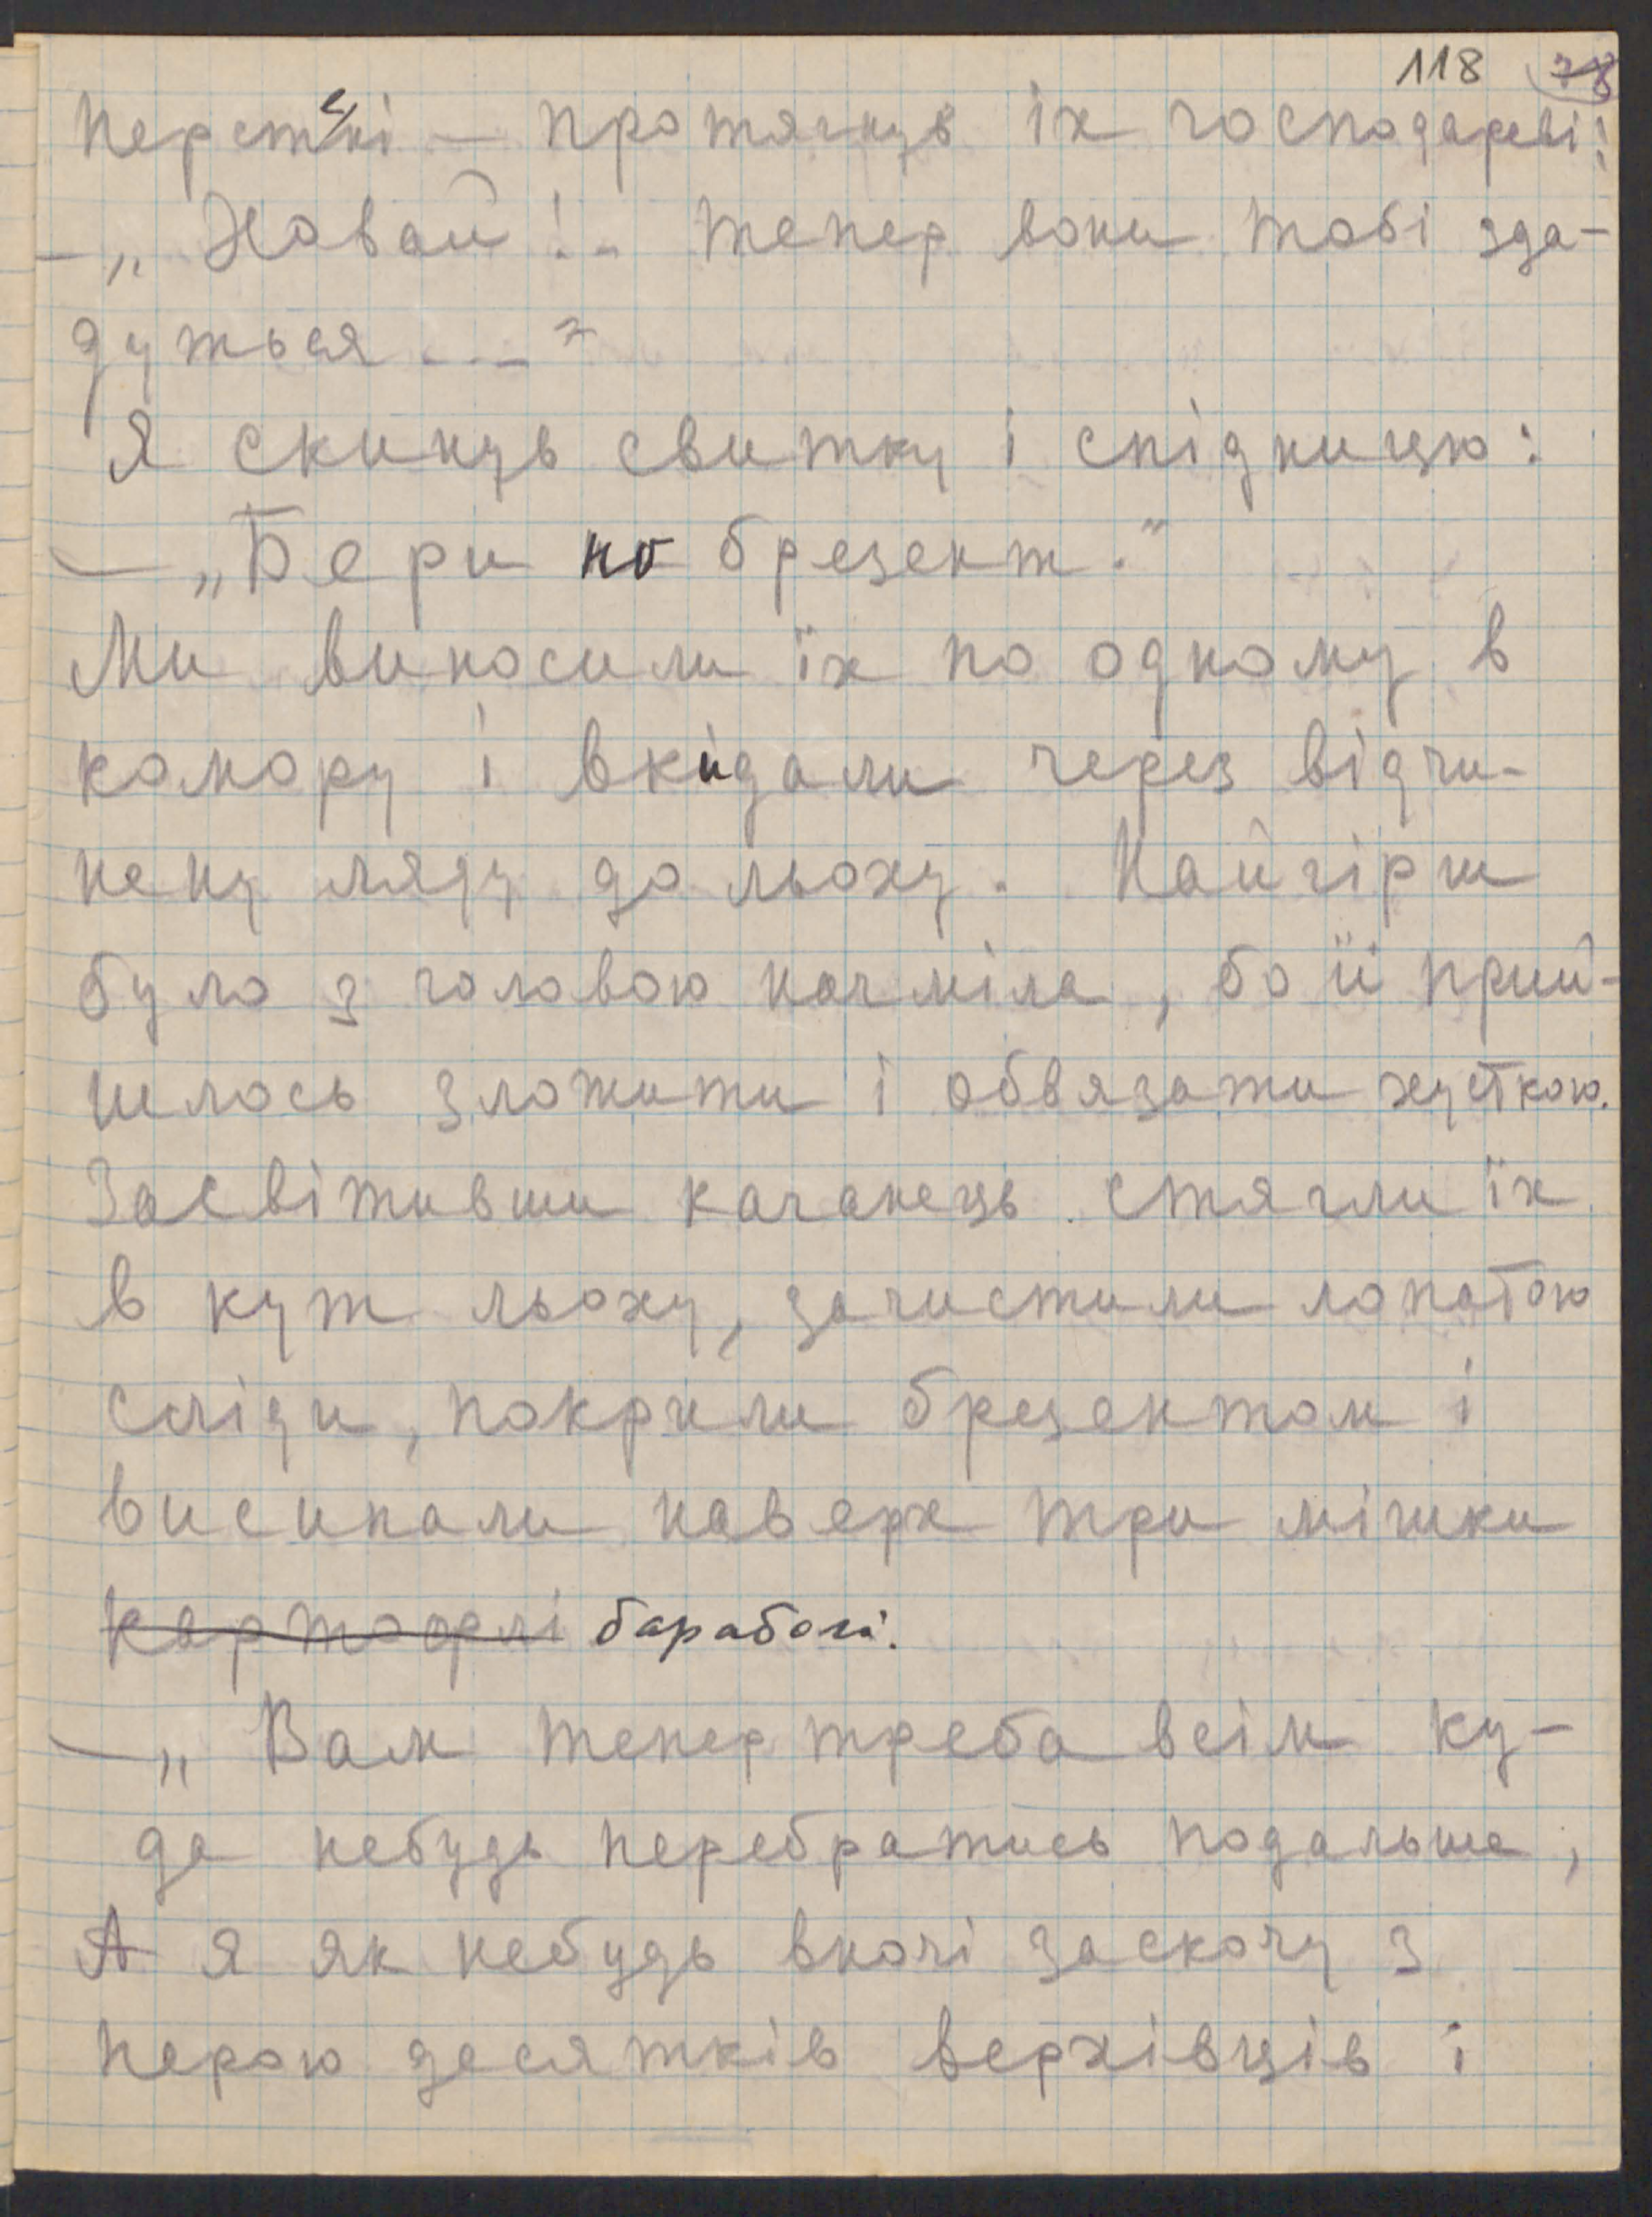 118 78
перстні — протягнув їх господареві:
— „Ховай!.. тепер вони тобі зда-
дуться..."
Я скинув свитку і спідницю:
— „Бери но брезент."
Ми виносили їх по одному в
комору і вкидали через відчи-
нену ляду до льоху. Найгірш
було з головою начміла, бо її прий-
шлось зложити і обвязати хусткою.
Засвітивши каганець стягли їх
в кут льоху, зачистили лопатою
сліди, покрили брезентом і
висипали наверх три мішки
картофлі бараболі.
— „Вам тепер треба всім ку-
да небудь перебратись подальше,
А я як небудь вночі заскочу з
парою десятків верхівців і